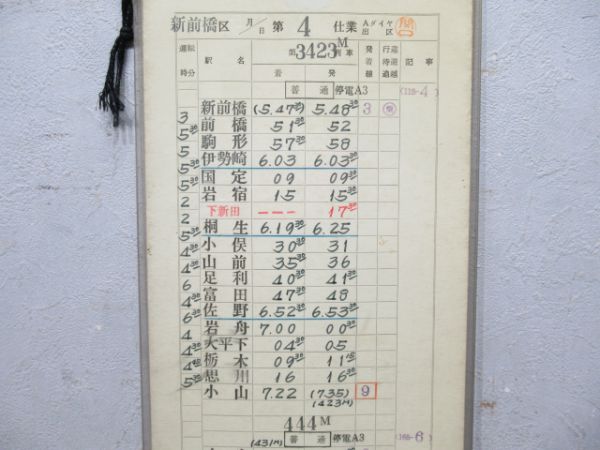 新前橋区 月/日 第 4 仕業 Aダイヤ 出区
運転時分 駅名 第3423M列車 着 発 発着線 行違待避 追越 記事
普通 停電A3 (115-4)
新前橋 (5.47³⁰) 5.48³⁰ 3
3 前橋 51³⁰ 52
5³⁰ 駒形 57³⁰ 58
5 伊勢崎 6.03 6.03³⁰
5³⁰ 国定 09 09³⁰
5 岩宿 15 15³⁰
2 下新田 --- 17³⁰
2 桐生 6.19³⁰ 6.25
5³⁰ 小俣 30³⁰ 31
4³⁰ 山前 35³⁰ 36
4³⁰ 足利 40³⁰ 41³⁰
6 富田 47³⁰ 48
4³⁰ 佐野 6.52³⁰ 6.53³⁰
6³⁰ 岩舟 7.00 00³⁰
4 大平下 04³⁰ 05
4³⁰ 栃木 09³⁰ 11¹⁵
4⁴⁵ 思川 16 16³⁰
5³⁰ 小山 7.22 (7.35) 9
(423M)
444M
(431M) 普通 停電A3 (165-6)